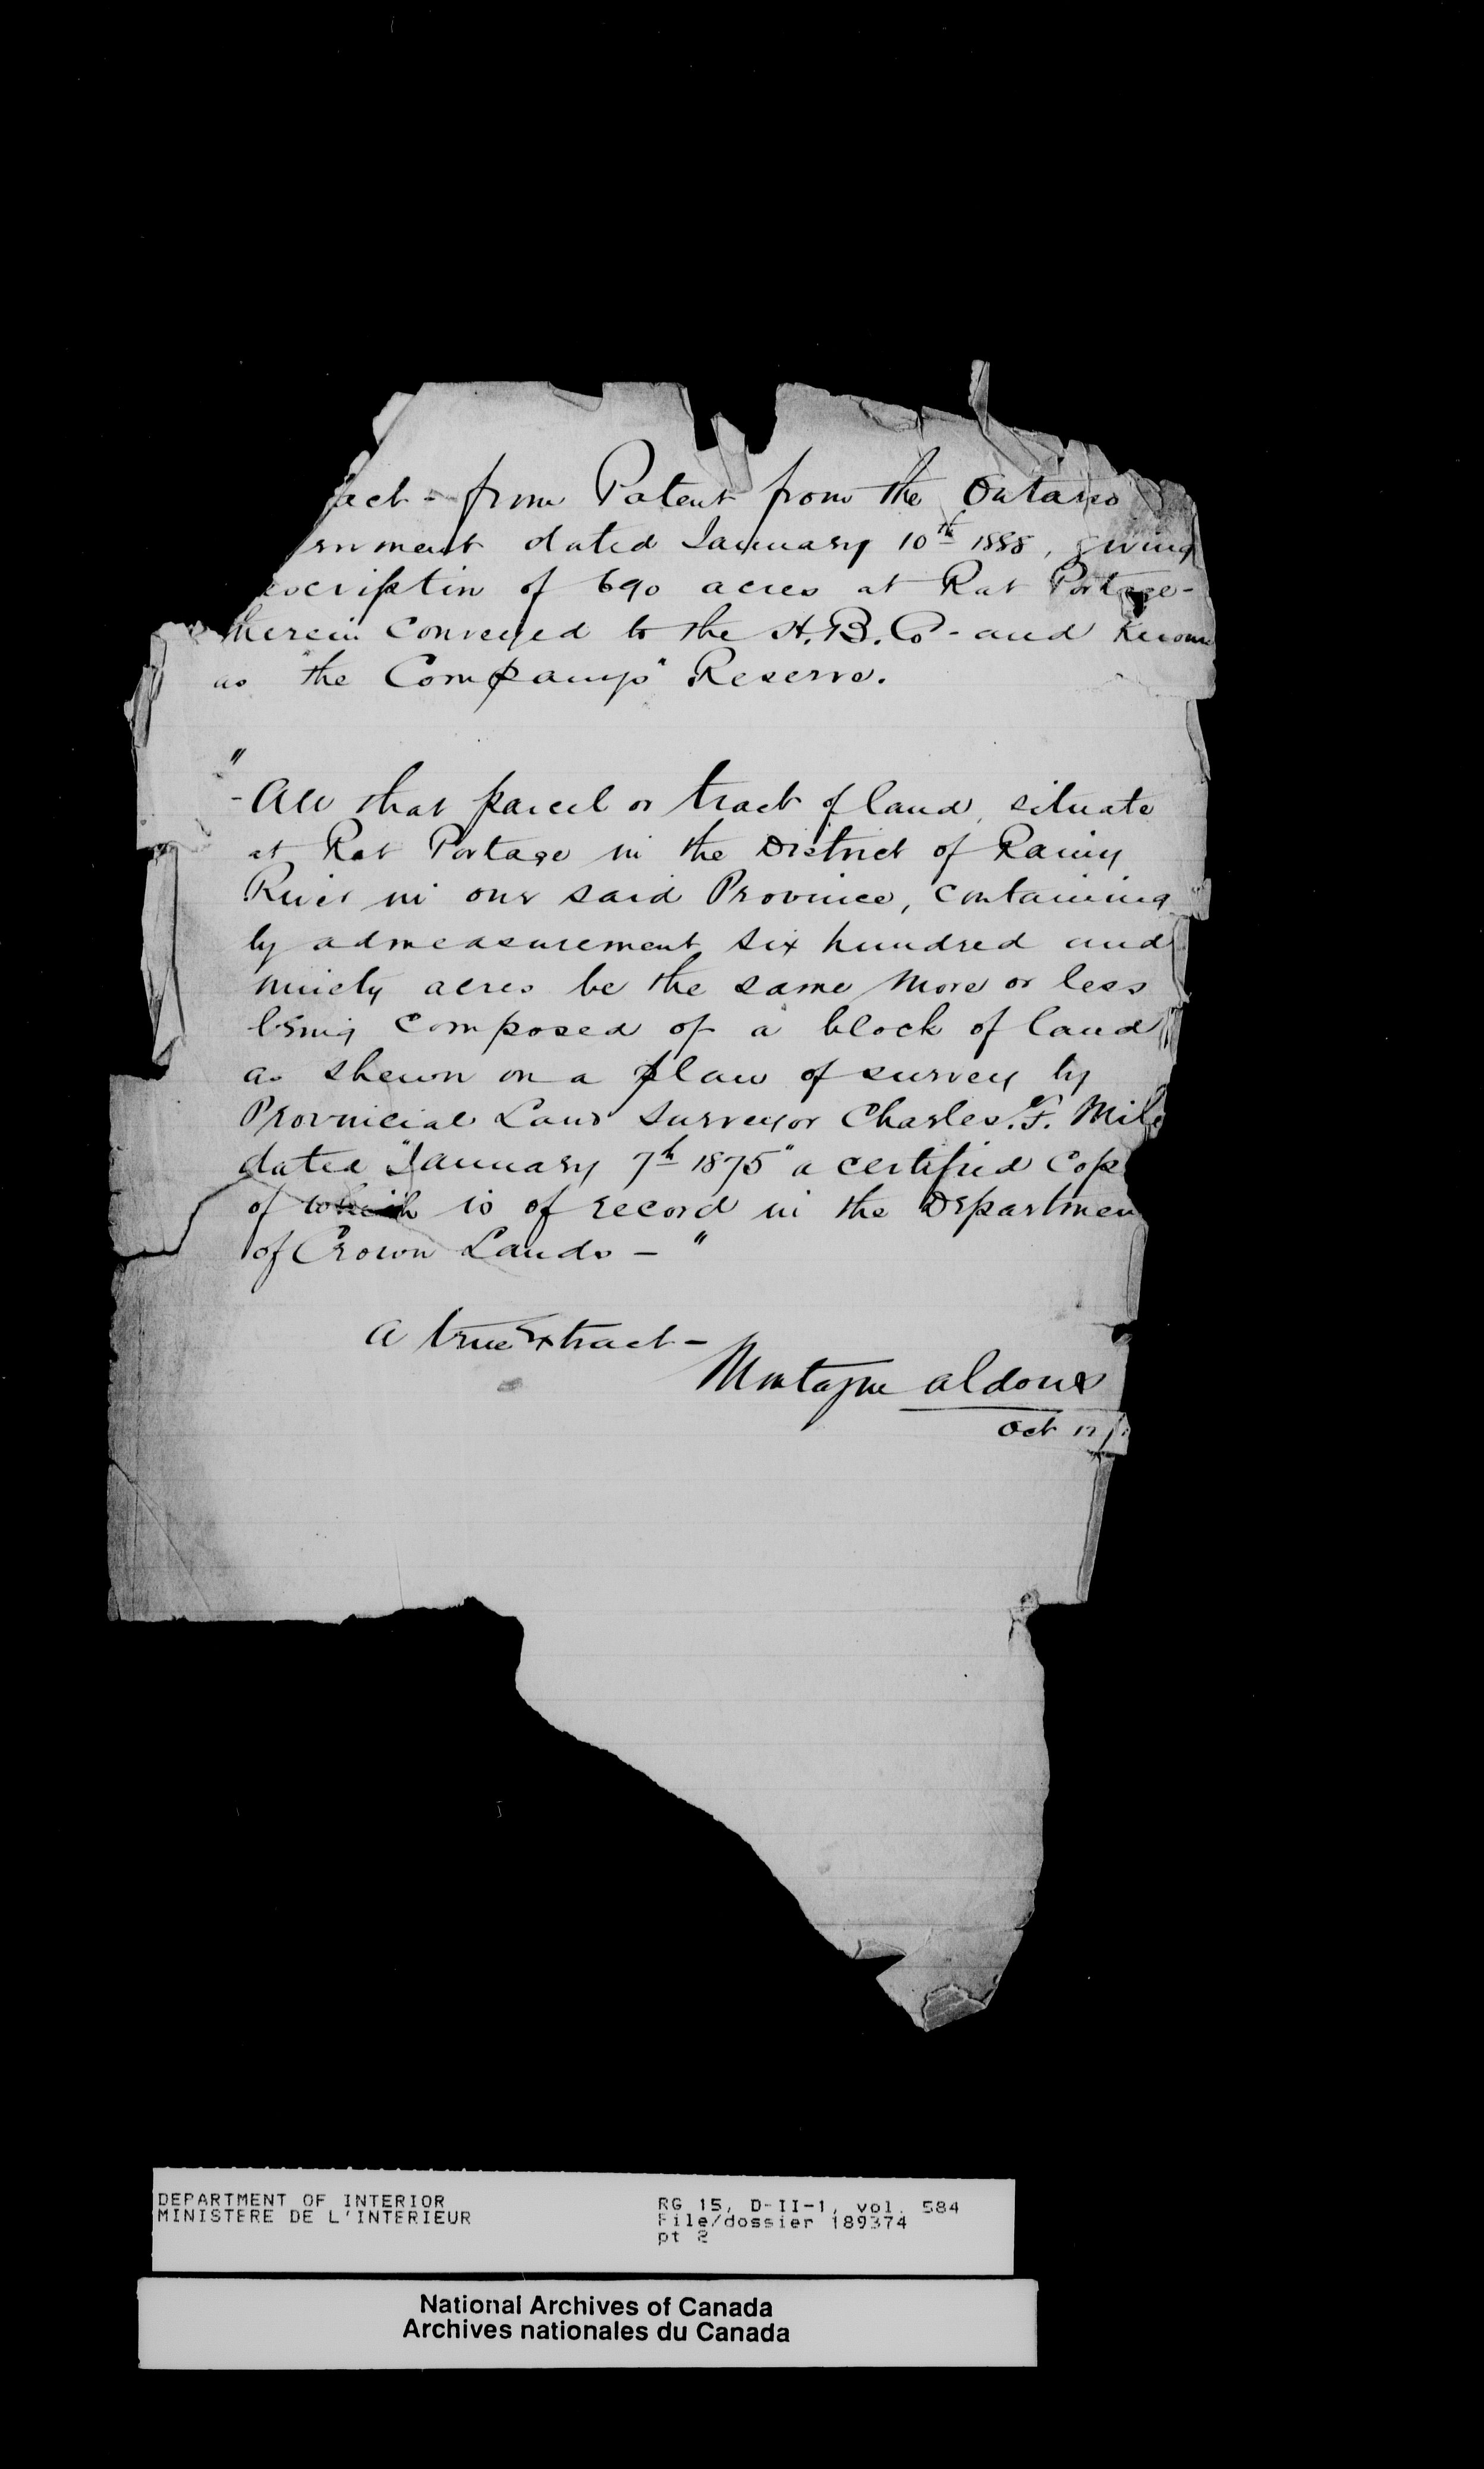 act - from Patent from the Ontario
ernment dated January 10th 1888, giving
escription of 690 acres at Rat Portage -
therein conveyed to the H.B.Co - and known
as "the Companys" Reserve.
"
- All that parcel or tract of land, situate
at Rat Portage in the District of Rainy
River in our said Province, containing
by admeasurement six hundred and
ninety acres be the same more or less
being composed of a block of land
as shewn on a plan of survey by
Provincial Land Surveyor Charles. F. Mile
dated "January 7th 1875" a certified cop
of which is of record in the Departmen
of Crown Lands - "
A true Extract -
Montague Aldous
Oct
DEPARTMENT OF INTERIOR
MINISTERE DE L'INTERIEUR
RG 15, D-II-1, vol. 584
File/dossier 189374
pt 2
National Archives of Canada
Archives nationales du Canada